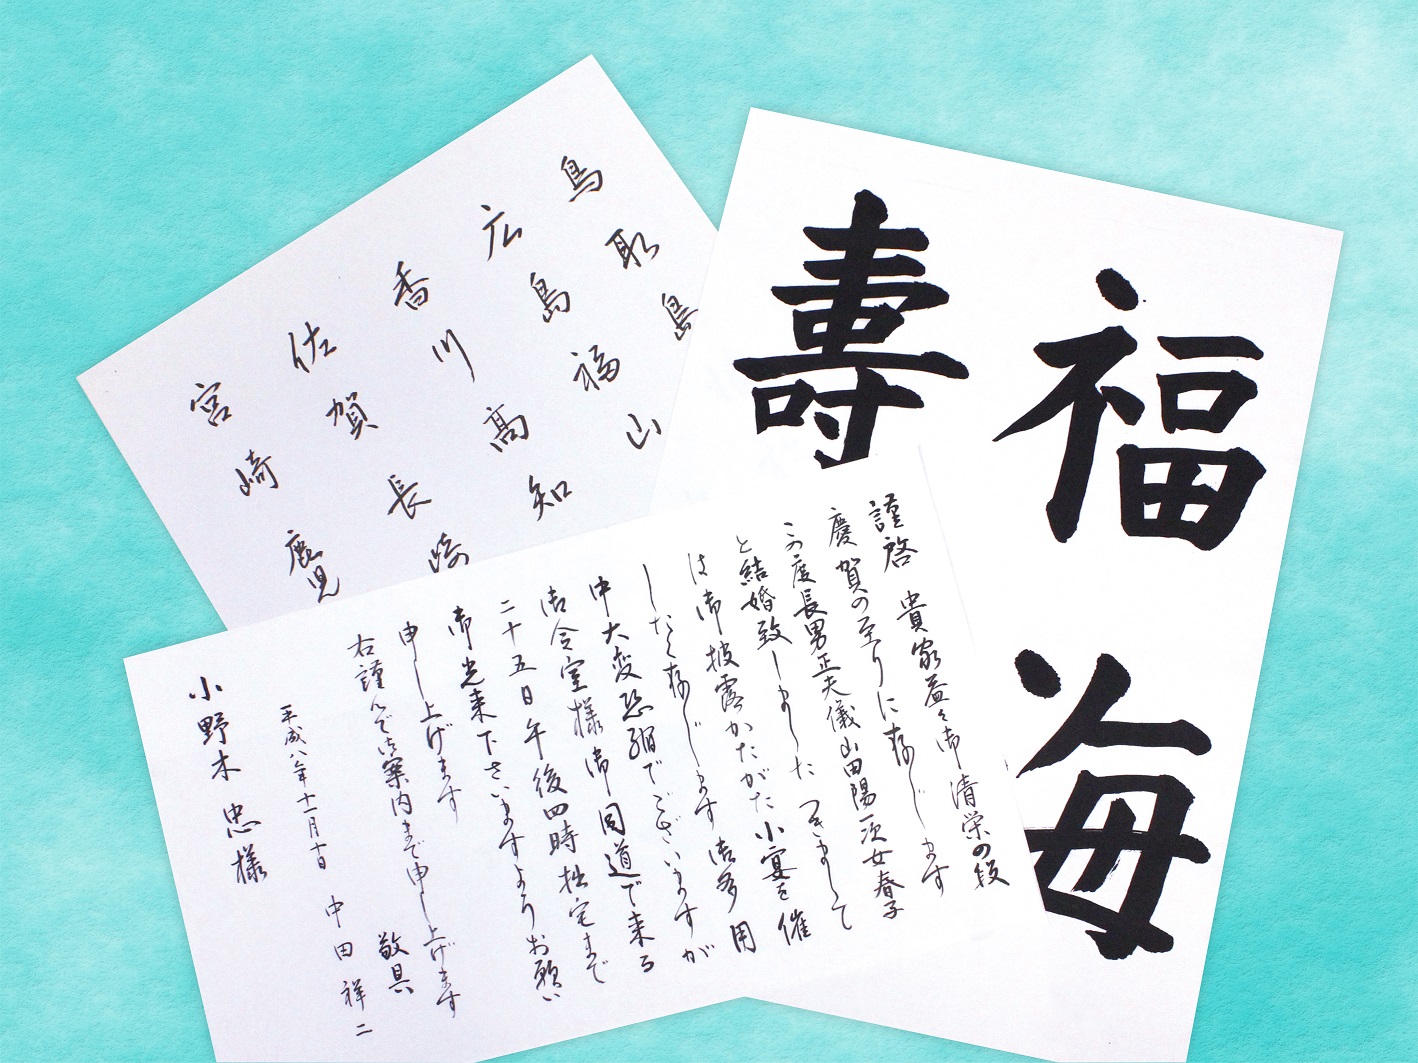 鳥取島
広島福山
香川高知
佐賀長崎
宮崎鹿児
福海
壽
謹啓 貴家益々御清栄の段
慶賀の至りに存じます
この度長男正夫儀山田陽一次女春子
と結婚致しました つきまして
は御披露かたがた小宴を催
したく存じます 御多用
中大変恐縮でございますが
御令室様御同道で来る
二十五日午後四時拙宅まで
御光来下さいますようお願い
申し上げます
右謹んで御案内まで申し上げます
敬具
平成八年十一月十日
中田祥二
小野木忠様